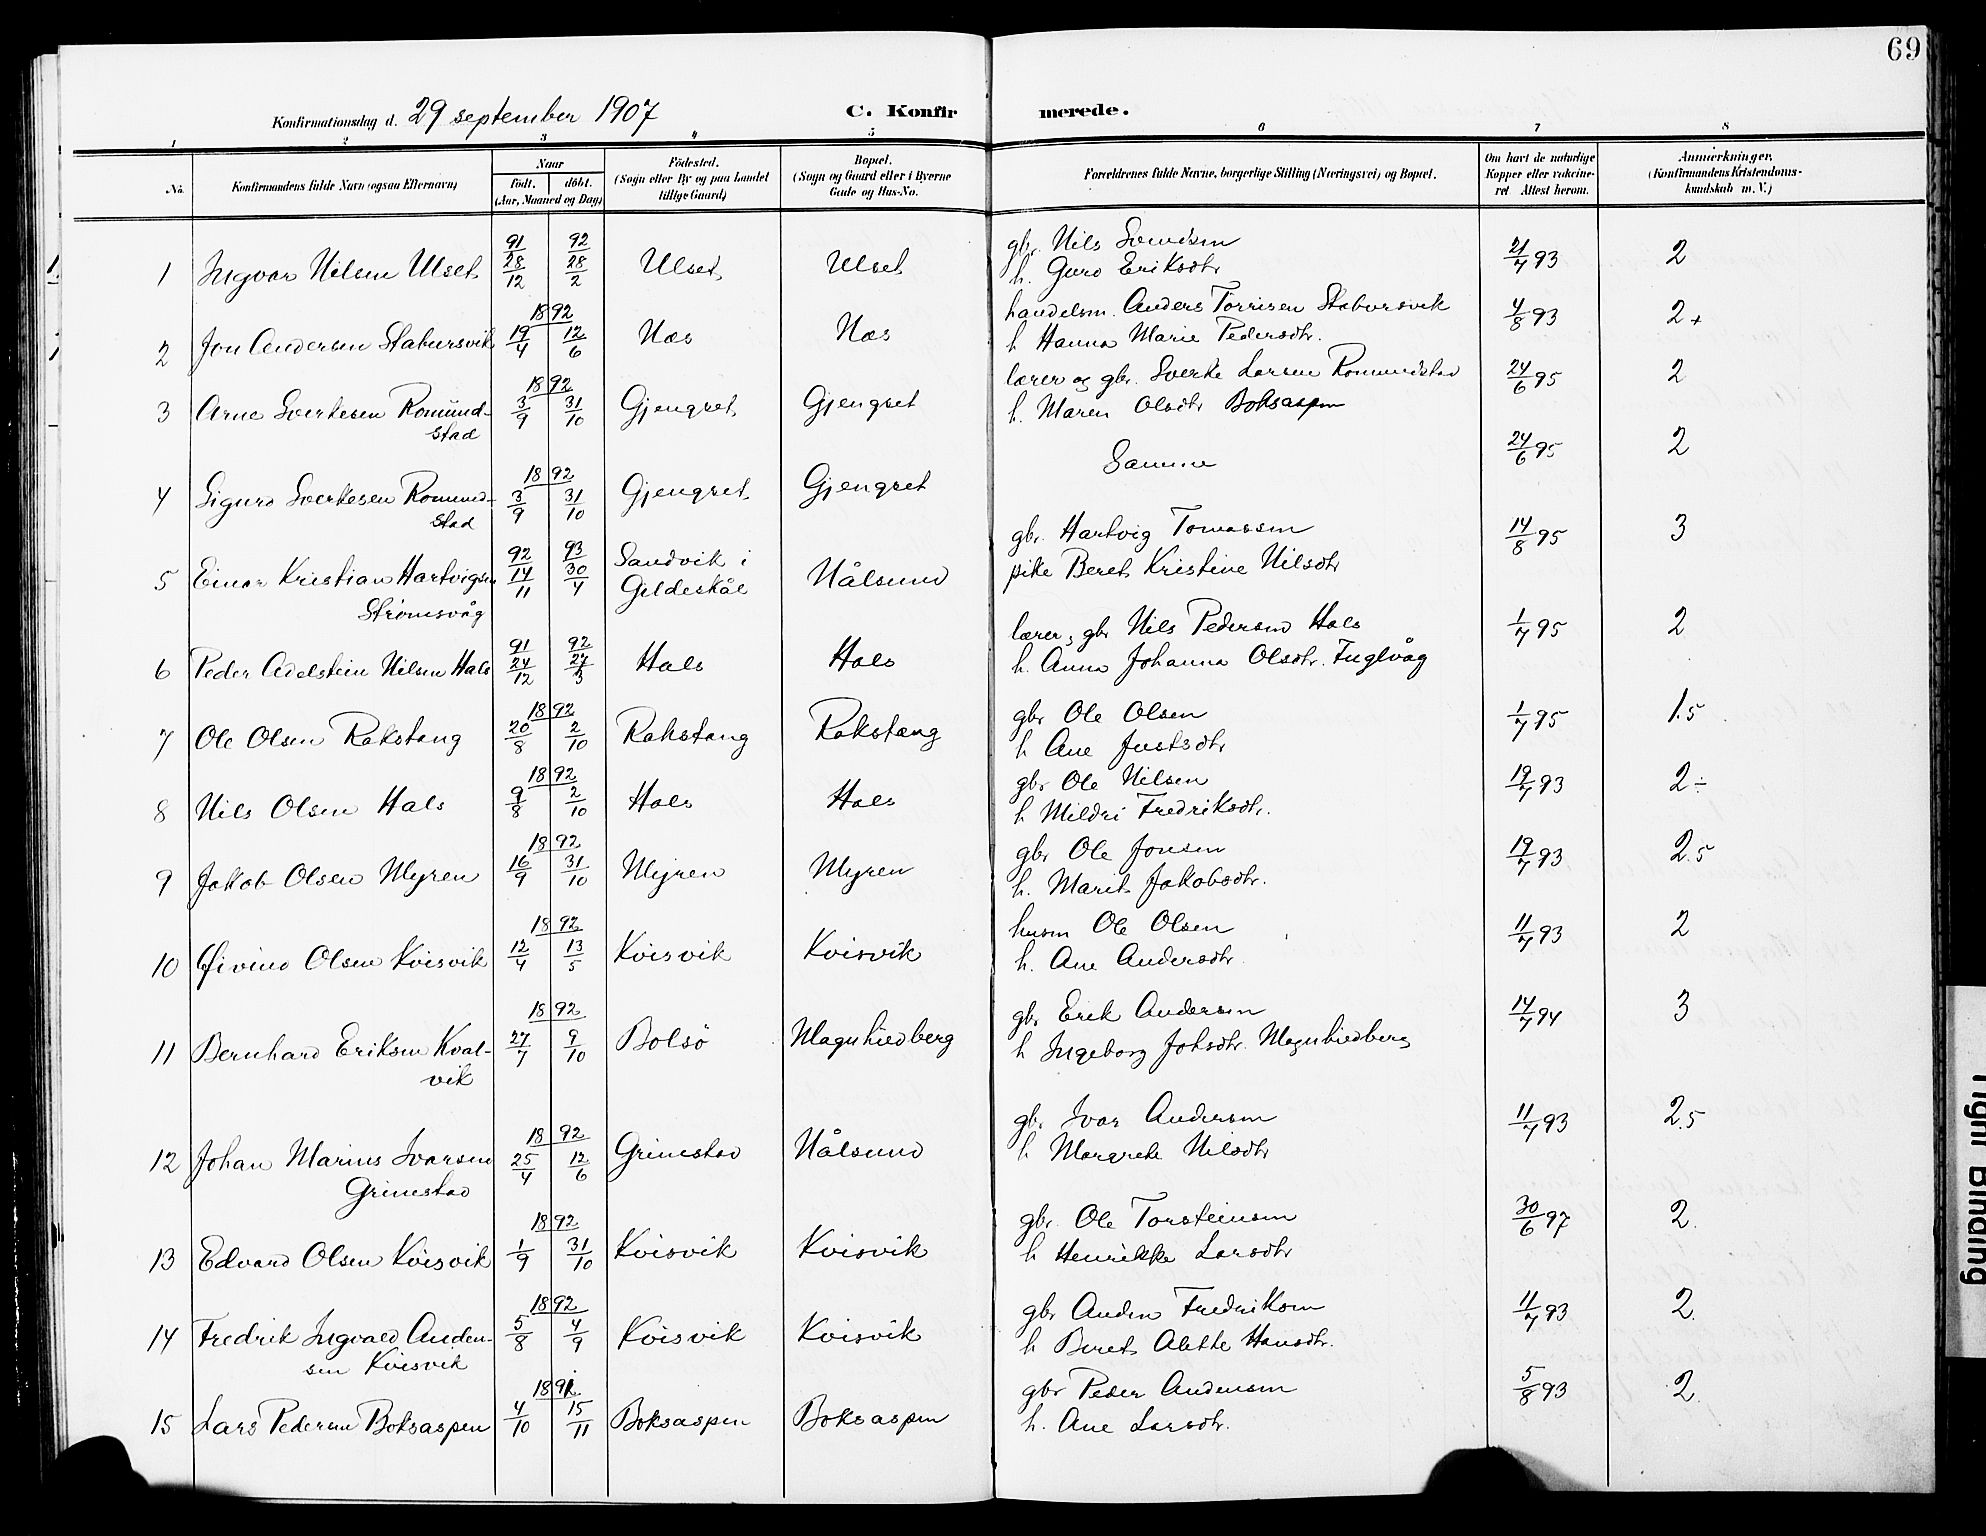 69
Konfirmationsdag d. 29 september 1907 C. Konfirmerede.
1 2 3 4 5 6 7 8
No. Konfirmandens fulde Navn (ogsaa Efternavn) Naar født. døbt. (Aar, Maaned og Dag) Fødested. (Sogn eller By og paa Landet tillige Gaard) Bopæl. (Sogn og Gaard eller i Byerne Gade og Hus-No. Forældrenes fulde Navne, borgerlige Stilling (Næringsvei) og Bopæl. Om havt de naturlige Kopper eller vakcineret Attest herom. Anmærkninger. (Konfirmandens Kristendomskundskab m. V.)
1 Ingvar Nilsen Ulset 91 28/12 92 28/2 Ulset Ulset gbr. Nils Svendsen 21/7 93 2
h. Guro Eriksdtr
2 Jon Andersen Stabursvik 1892 19/4 12/6 Næs Næs handelsm. Anders Torrisen Stabursvik 4/8 93 2+
h Hanna Marie Pedersdtr.
3 Arne Sverkesen Romund- 1892 3/9 31/10 Gjengset Gjengset lærer og gbr. Sverke Larsen Romundstad 24/6 95 2
stad h. Maren Olsdtr Boksaspen
4 Sigurd Sverkesen Romund- 1892 3/9 31/10 Gjengset Gjengset Samme 24/6 95 2
stad
5 Einar Kristian Hartvigsen 92 14/11 93 30/4 Sandvik i Gildeskål Nålsund gbr. Hartvig Tomassen 14/8 95 3
Strømsvåg pike Beret Kristine Nilsdtr
6 Peder Adelstein Nilsen Hals 91 24/12 92 27/3 Hals Hals lærer, gbr Nils Pedersen Hals 1/7 95 2
h. Anna Johanna Olsdtr. Fuglvåg
7 Ole Olsen Rakstang 1892 20/8 2/10 Rakstang Rakstang gbr Ole Olsen 1/7 95 1.5
h Ane Justsdtr
8 Nils Olsen Hals 1892 9/8 2/10 Hals Hals gbr Ole Nilsen 19/7 93 2÷
h Mildri Fredriksdtr.
9 Jakob Olsen Myren 1892 16/9 31/10 Myren Myren gbr Ole Jonsen 19/7 93 2.5
h. Marit Jakobsdtr.
10 Øivind Olsen Kvisvik 1892 12/4 13/5 Kvisvik Kvisvik husm Ole Olsen 11/7 93 2
h. Ane Andersdtr
11 Bernhard Eriksen Kval- 1892 27/7 9/10 Bolsö Magnhildberg gbr Erik Andersen 14/7 94 3
vik h Ingeborg Johsdtr. Magnhildberg
12 Johan Marius Ivarsen 1892 25/4 12/6 Grimstad Nålsund gbr. Ivar Andersen 11/7 93 2.5
Grimstad h Margrete Nilsdtr
13 Edvard Olsen Kvisvik 1892 1/9 31/10 Kvisvik Kvisvik gbr. Ole Torsteinsen 30/6 97 2.
h Henrikke Larsdtr
14 Fredrik Ingvald Anden- 1892 5/8 4/9 Kvisvik Kvisvik gbr Anden Fredriksen 11/7 93 2.
sen Kvisvik h Beret Alette Hansdtr.
15 Lars Pedersen Boksaspen 1891 4/10 15/11 Boksaspen Boksaspen gbr Peder Andensen 5/8 93 2.
h. Ane Larsdtr.
Tight Binding